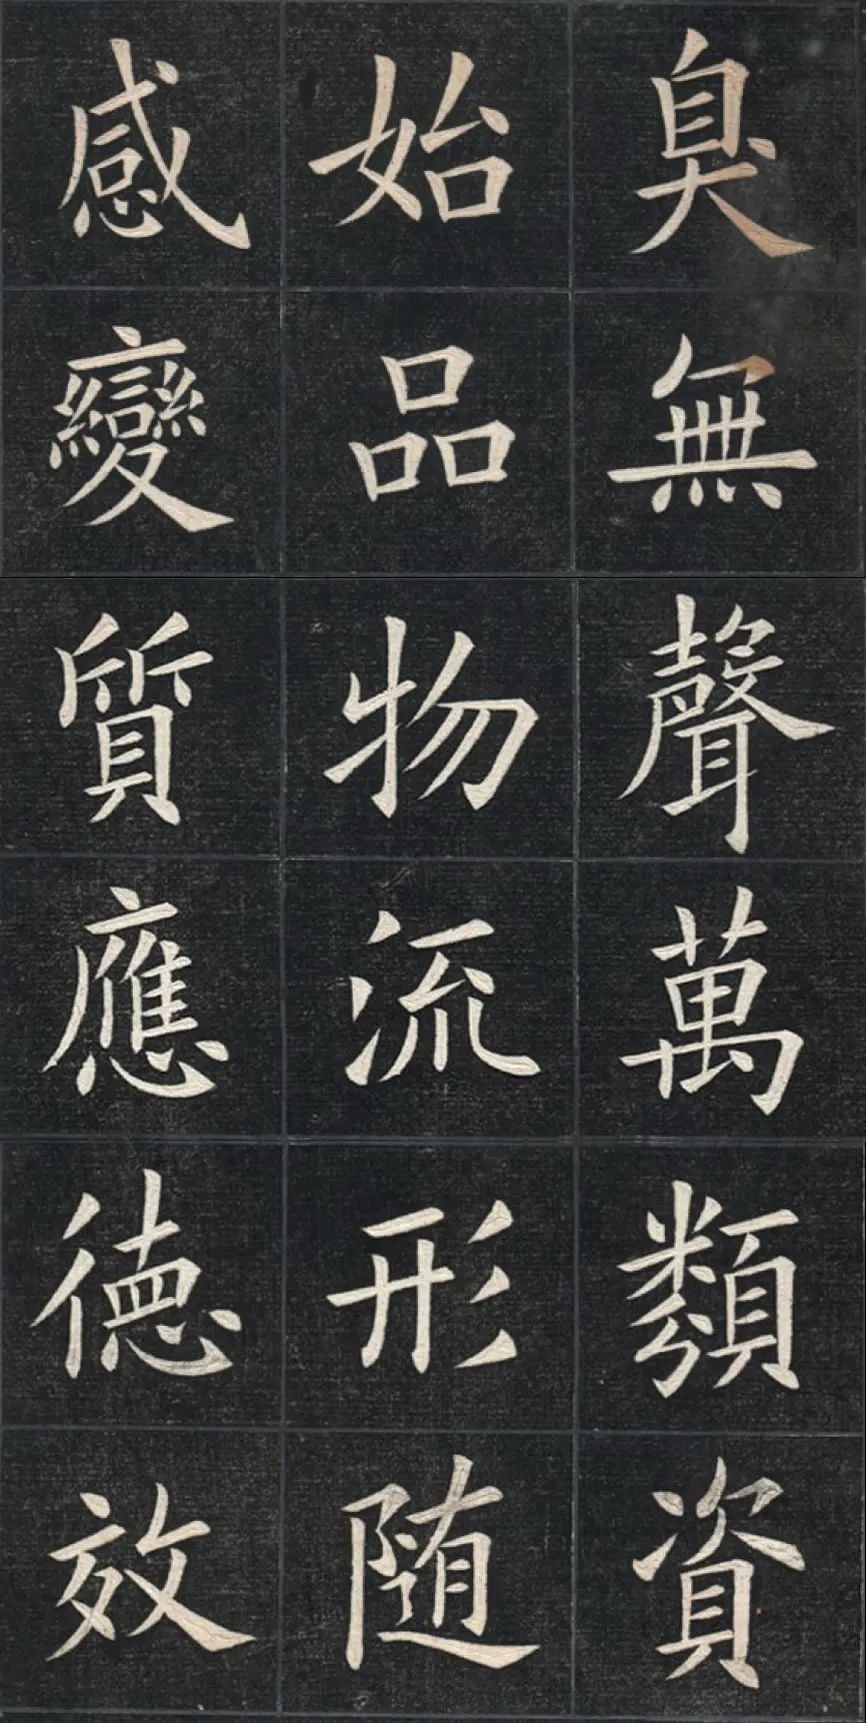 臭無聲萬類資
始品物流形随
感變質應德效